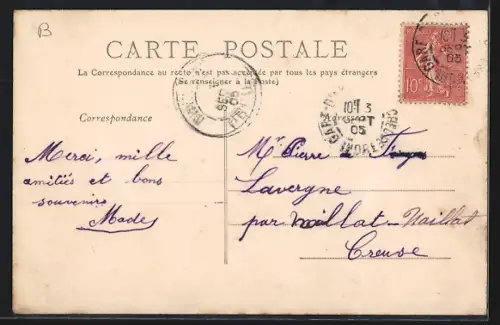 B
CARTE POSTALE
La Correspondance au recto n'est pas acceptée par tous les pays étrangers
(Se renseigner à la Poste)
Correspondance
Merci, mille
amitiés et bons
souvenirs
Made
Mr Pierre de
Lavergne
par Naillat
Creuse
10c
10 3
SEPT
05
INDRE